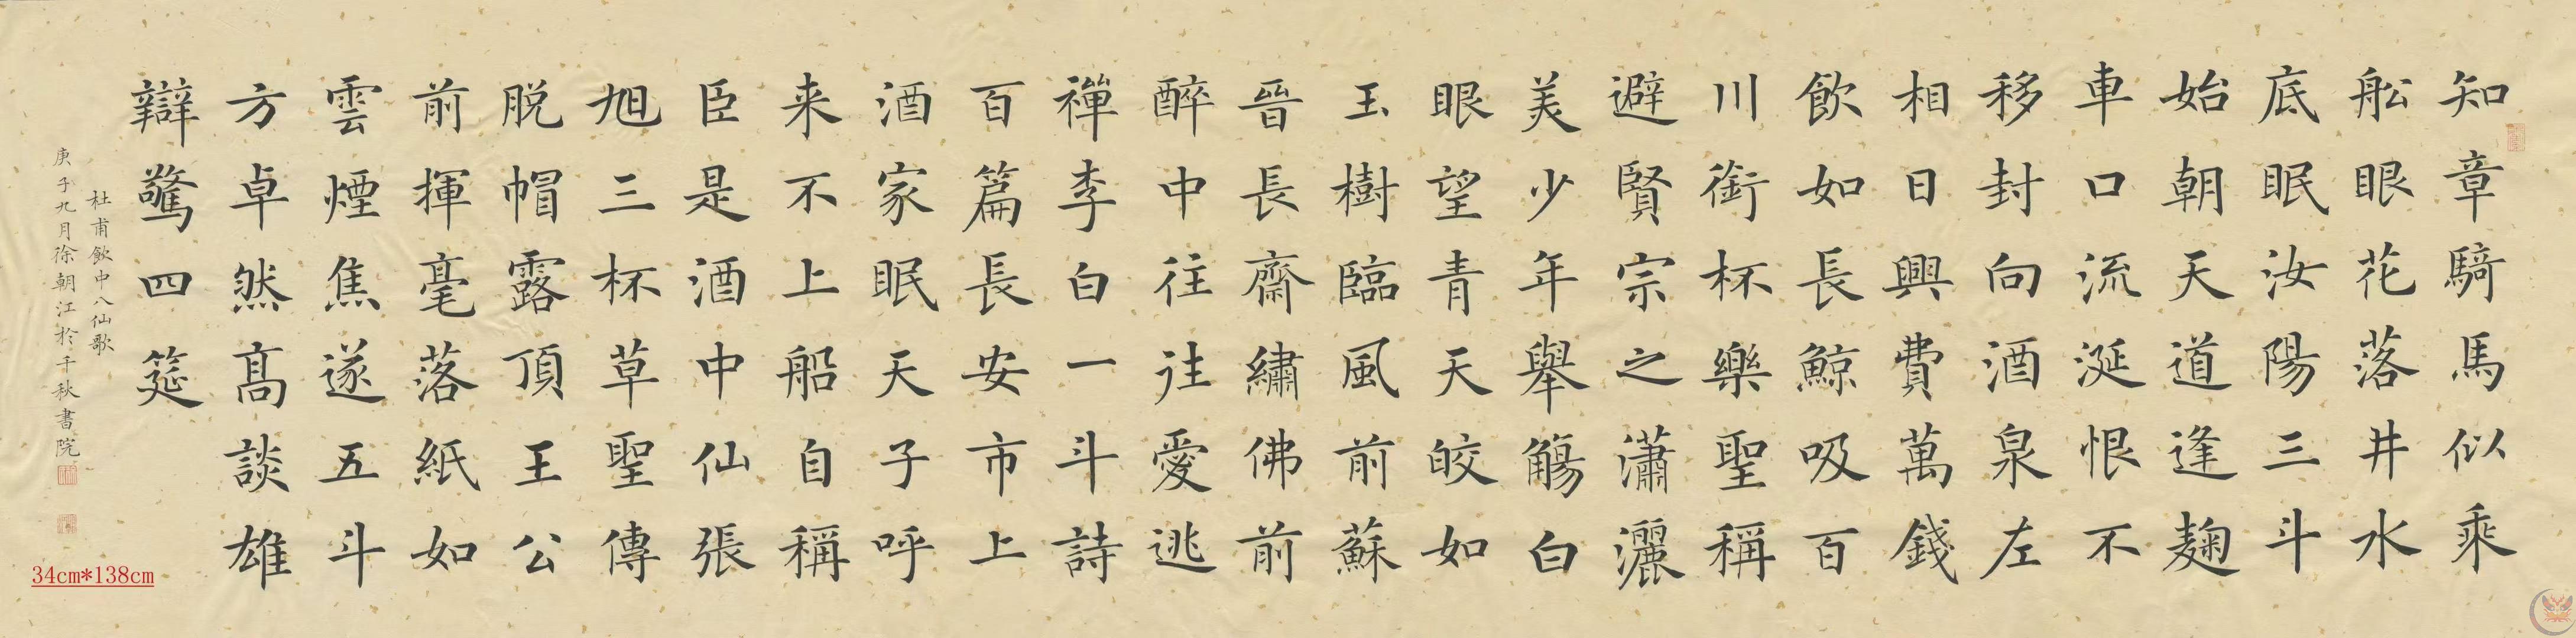 知章騎馬似乘
舩眼花落井水
底眠汝陽三斗
始朝天道逢麹
車口流涎恨不
移封向酒泉左
相日興費萬錢
飲如長鯨吸百
川銜杯樂聖稱
避賢宗之瀟灑
美少年舉觴白
眼望青天皎如
玉樹臨風前蘇
晉長齋繡佛前
醉中往往愛逃
禪李白一斗詩
百篇長安市上
酒家眠天子呼
来不上船自稱
臣是酒中仙張
旭三杯草聖傳
脱帽露頂王公
前揮毫落紙如
雲煙焦遂五斗
方卓然髙談雄
辯驚四筵
杜甫飲中八仙歌
庚子九月徐朝江於千秋書院
34cm*138cm